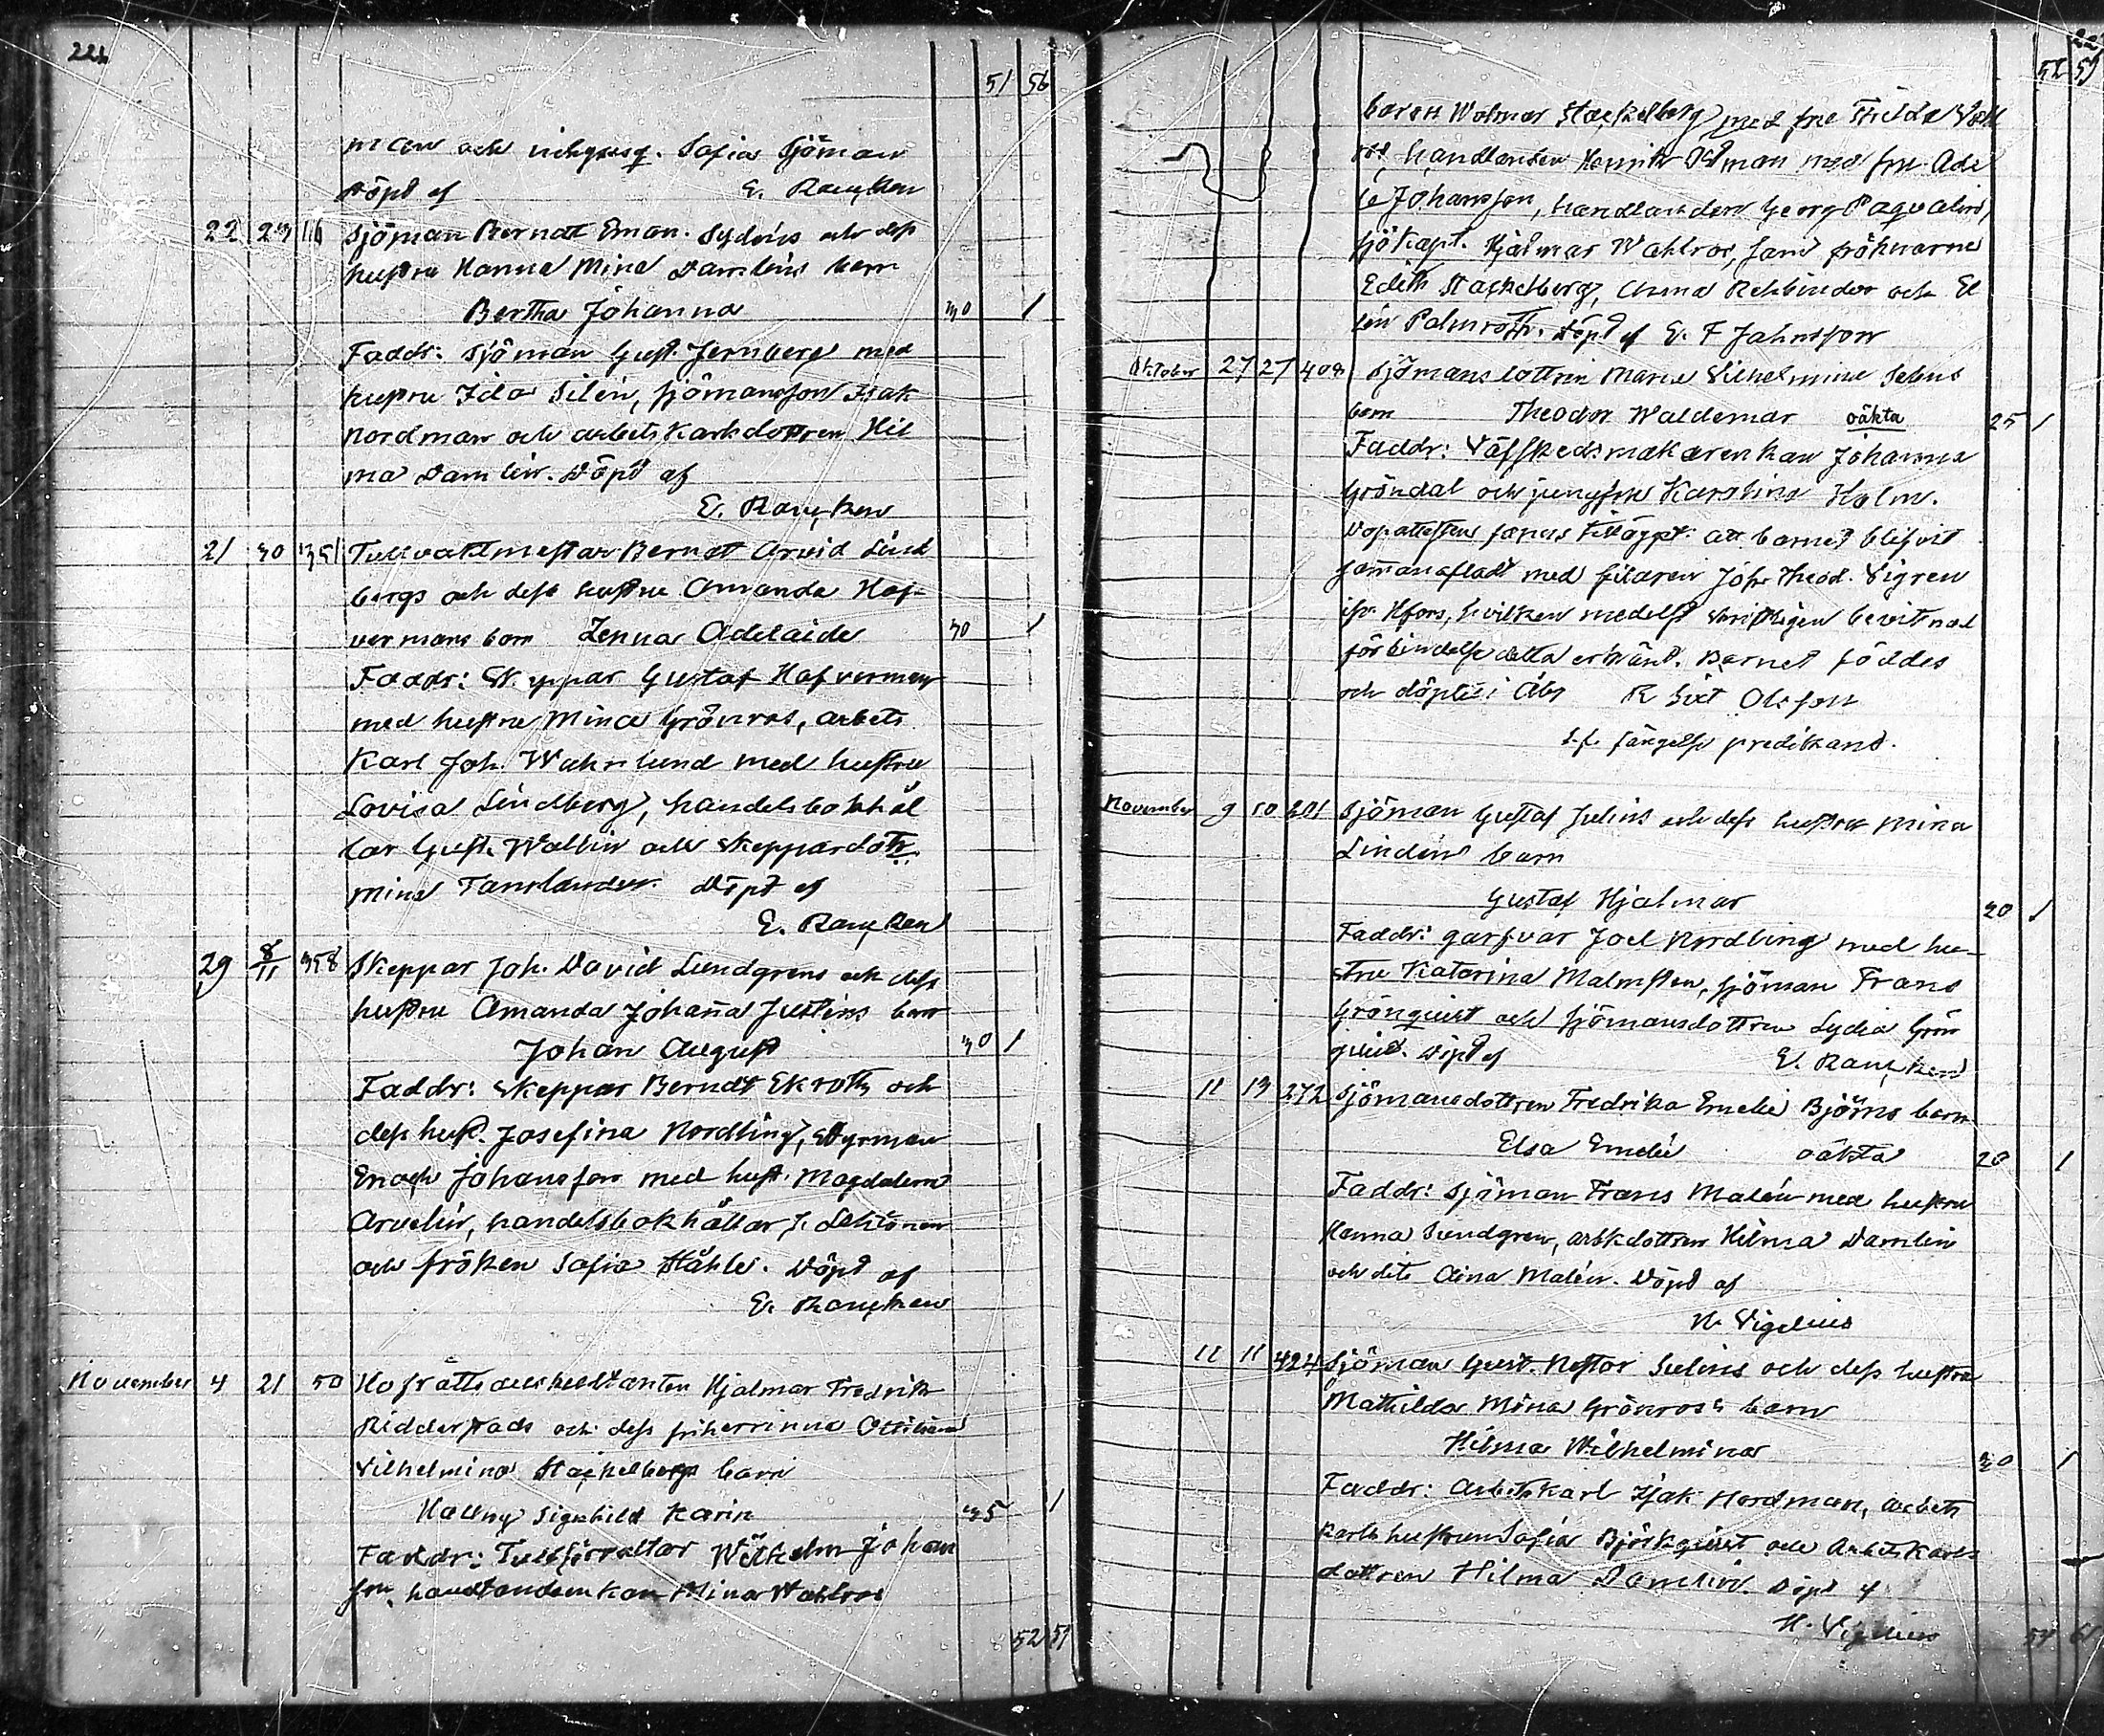 226
51 56
man och Sofia Sjöman
döpt af E. Rancken
22 23 116 Sjöman Berndt Eman. Sydéns och dess
hustru Hanna Mina Damléns barn
Bertha Johanna 30 1
Faddr: Sjöman Gust. Jernberg med
hustru Ida Silén, sjömansson Isak
Nordman och arbetskarlsdottren Hil
ma Damlén. Döpt af
E. Rancken
21 30 351 Tullvaktmestar Berndt Arvid Lind
bergs och dess hustru Amanda Haf-
vermans barn Jenna Adelaide 30 1
Faddr: Skeppar Gustaf Hafverman
med hustru Mina Grönros, arbets
karl Joh. Wahrlund med hustru
Lovisa Lindberg, handelsbokhål
lar Gust. Wallin och skeppardottr.
Mina Tamlander. Döpt af
E. Rancken
29 8/11 358 Skeppar Joh. David Lundgrens och dess
hustru Amanda Johanna Justins barn
Johan August 30 1
Faddr: Skeppar Berndt Ekroth och
dess hust. Josefina Nordling, Styrman
Enoch Johansson med hust. Magdalena
Arvelin, handelsbokhållar J. Lehtonen
och fröken Sofia Ståhle. Döpt af
E. Rancken
November 4 21 50 Hofrätts auskultanten Hjalmar Fredrik
Ridderstads och dess friherrinna Ottiliana
Vilhelmina Stackelbergs barn
Hallny Signhild Karin 35 1
Faddr: Tullförvaltar Wilhelm Johan
son, handlandeenkan Mina Wahlros
52 57
227
52 57
baron Wolmar Stackelberg med fru Hilda Wahl
ros, handlanden Henrik Öhman med fru Ade
le Johansson, handlanden Georg Paqvalin,
sjökapt. Hjalmar Wahlros, samt fröknarne
Edith Stackelberg, Anna Rehbinder och El
lin Palmroth. Döpt af E. F Jahnsson
Oktober 27 27 408 Sjömansdottrin Maria Vilhelmina Selins
barn Theodor Waldemar oäkta 25 1
Faddr: Väfskedsmakarenkan Johanna
Gröndal och jungfru Karolina Holm.
Dopattesten fanns tillagdt: att barnet blifvit
sammanafladt med filaren Joh. Theod. Vigren
i Hfors, hvilken medelst skriftligen bevitnad
förbindelse detta erkänt. Barnet föddes
och döptes i Åbo R Sixt Olsson
t.f. fängelse predikant.
November 9 10 201 Sjöman Gustaf Julins och dess hustru Mina
Lindéns barn
Gustaf Hjalmar 20 1
Faddr: garfvar Joel Nordling med hu-
stru Katarina Malmsten, sjöman Frans
Grönquist och sjömansdottren Lydia Grön
quist. Döpt af E. Rancken
11 13 272 Sjömansdottren Fredrika Emelie Björns barn
Elsa Emelie oäkta 20 1
Faddr: Sjöman Frans Malén med hustru
Hanna Sundgren, arbkdottren Hilma Damlén
och dito Aina Malén. Döpt af
H. Vigelius
11 11 424 Sjöman Gust. Nestor Selins och dess hustru
Mathilda Mina Grönroos barn
Hilma Wilhelmina 30 1
Faddr: Arbetskarl Isak Nordman, arbets
karls hustrun Sofia Björkquist och Arbetskarls
dottren Hilma Damlén. Döpt af
H. Vigelius
54 61